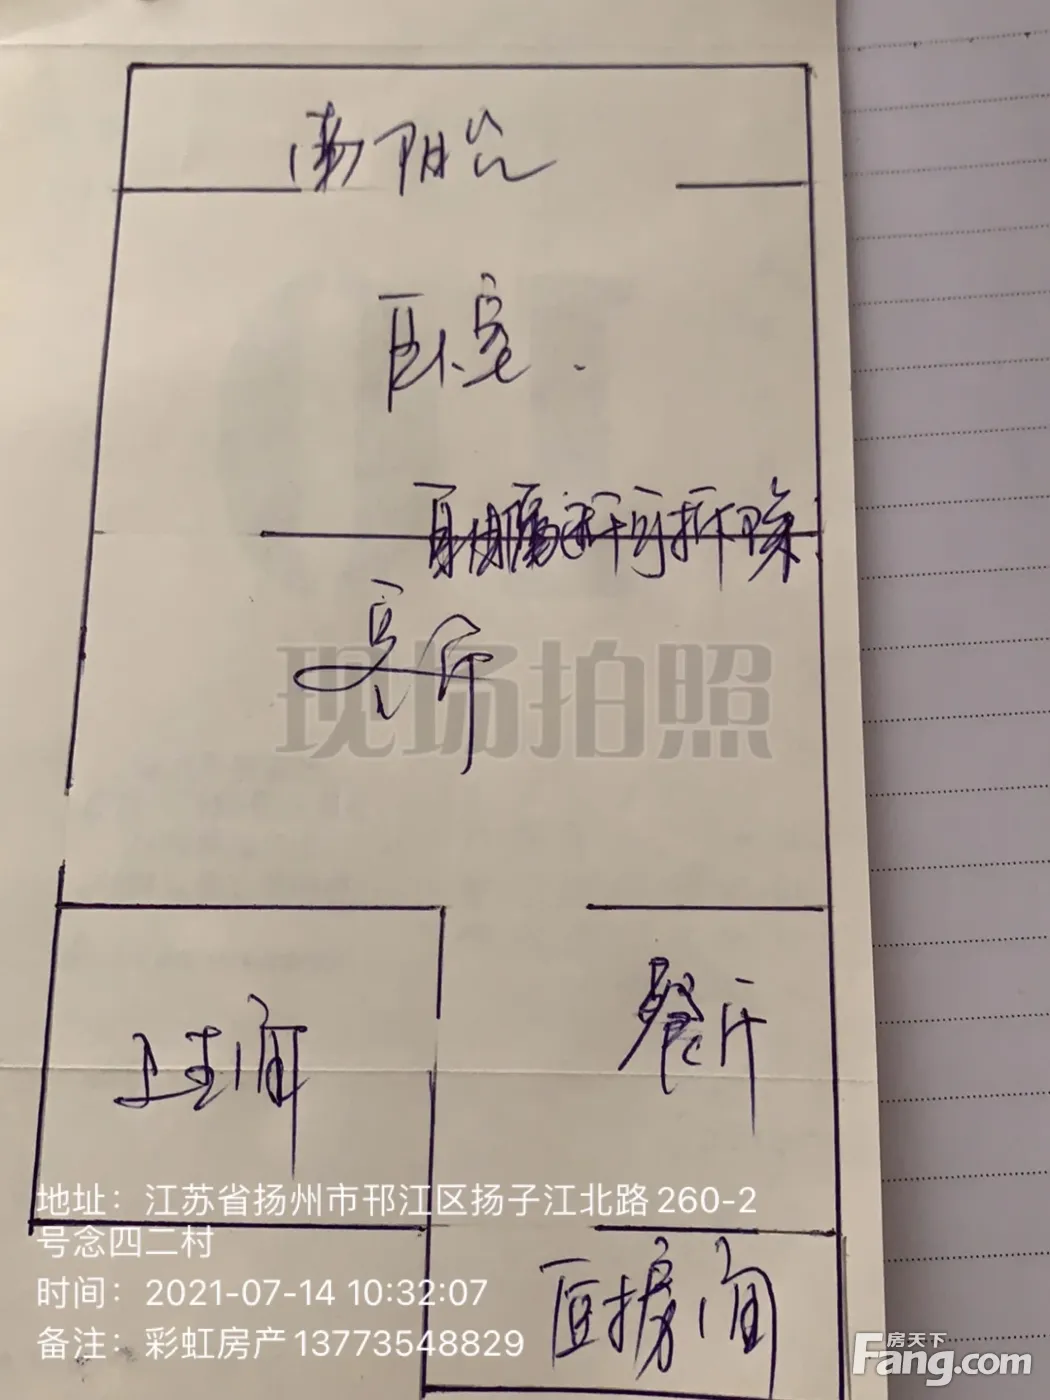 南阳台
卧室.
客厅
现场拍照
餐厅
卫生间
地址：江苏省扬州市邗江区扬子江北路260-2
号念四二村
时间：2021-07-14 10:32:07
备注：彩虹房产13773548829
房天下
Fang.com